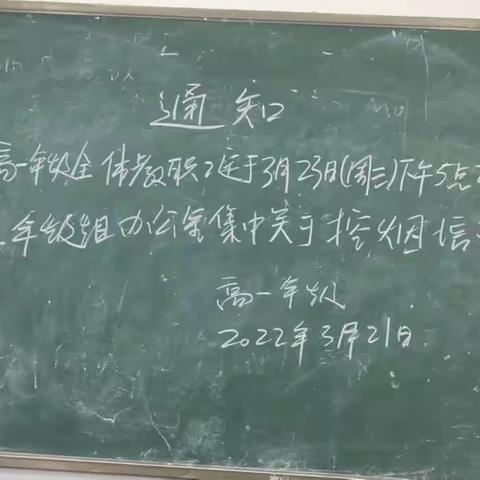 通知
高一年级全体教职工于3月23日(周三)下午5点
年级组办公室集中关于控烟培
高一年级
2022年3月21日